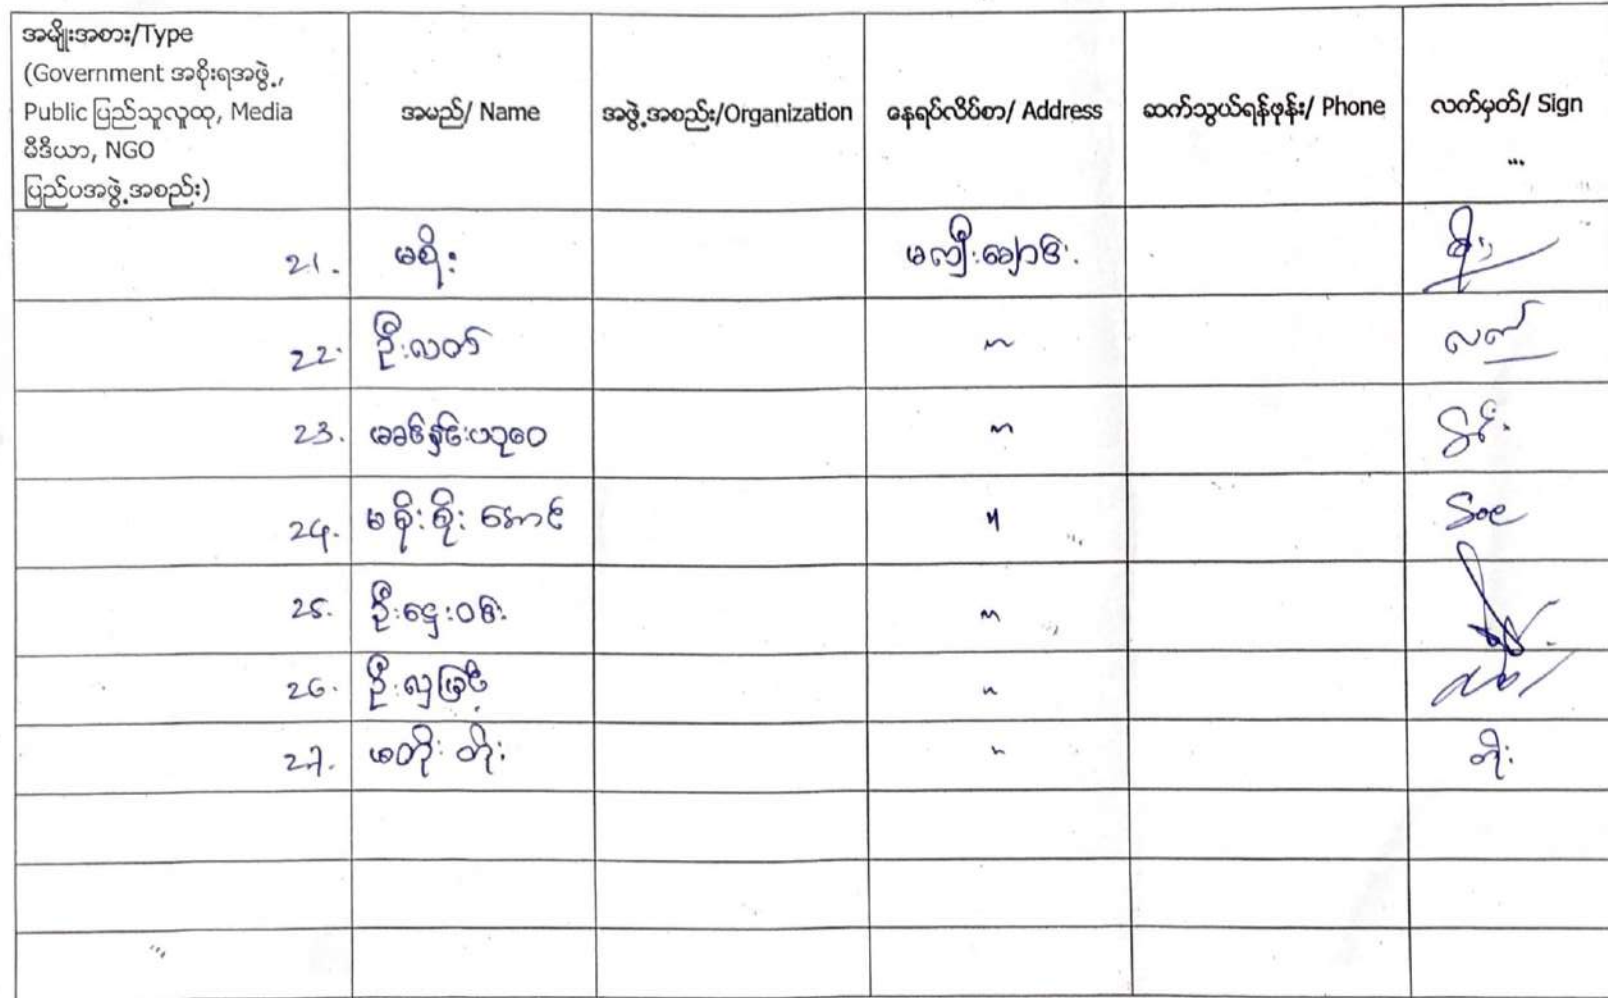 အမျိုးအစား/Type
(Government အစိုးရအဖွဲ့,
Public ပြည်သူလူထု, Media
မီဒီယာ, NGO
ပြည်ပအဖွဲ့အစည်း)
အမည်/ Name
အဖွဲ့အစည်း/Organization
နေရပ်လိပ်စာ/ Address
ဆက်သွယ်ရန်ဖုန်း/ Phone
လက်မှတ်/ Sign
21. မစိုး မကျီးချောင်း
22. ဦးလတ် " လတ်
23. "
24. မစိုးစိုးအောင် " Soe
25. ဦးဌေးဝင်း "
26. ဦးလှမြင့် "
27. မတိုးတိုး " တိုး